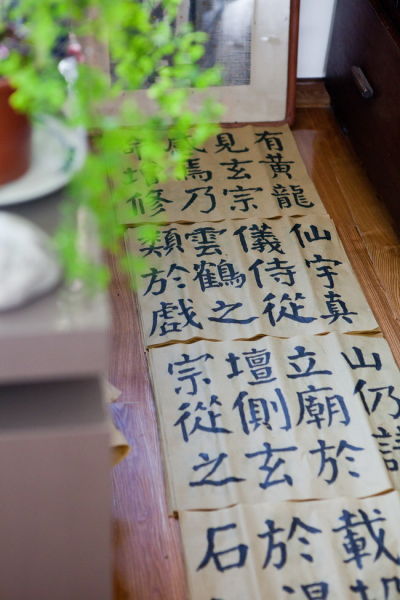 有黃龍
見玄宗
感焉乃
增修
仙宇真
儀侍從
雲鶴之
類於戲
山仍請
立廟於
壇側玄
宗從之
載
於
石